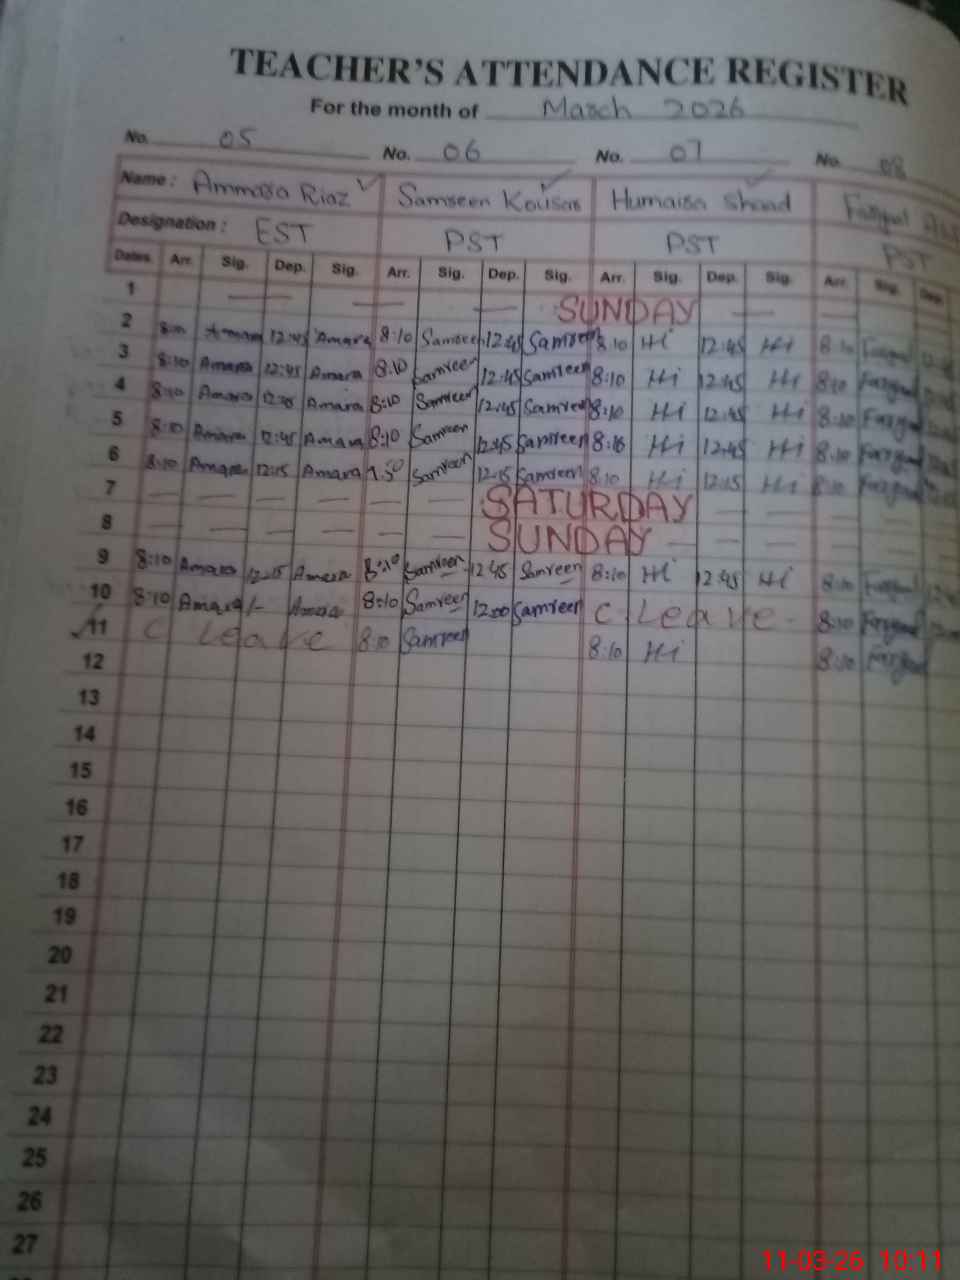 TEACHER'S ATTENDANCE REGISTER
For the month of March 2026
No. 05 No. 06 No. 07 No. 08
Name: Ammara Riaz Samreen Kousar Humaira Shaad
Designation: EST PST PST PST
Dates Arr. Sig. Dep. Sig. Arr. Sig. Dep. Sig. Arr. Sig. Dep. Sig. Arr. Sig. Dep.
1 SUNDAY
2 8:10 Amara 12:45 Amara 8:10 Samreen 12:45 Samreen 8:10 Hi 12:45 Hi 8:10
3 8:10 Amara 12:45 Amara 8:10 Samreen 12:45 Samreen 8:10 Hi 12:45 Hi 8:10
4 8:10 Amara 12:45 Amara 8:10 Samreen 12:45 Samreen 8:10 Hi 12:45 Hi 8:10
5 8:10 Amara 12:45 Amara 8:10 Samreen 12:45 Samreen 8:10 Hi 12:45 Hi 8:10
6 8:10 Amara 12:15 Amara 7:50 Samreen 12:15 Samreen 8:10 Hi 12:15 Hi 8:10
7 SATURDAY
8 SUNDAY
9 8:10 Amara 12:45 Amara 8:10 Samreen 12:45 Samreen 8:10 Hi 12:45 Hi 8:10
10 8:10 Amara 1/- Amara 8:10 Samreen 12:00 Samreen C Leave 8:10
11 C Leave 8:10 Samreen 8:10 Hi 8:10
12
13
14
15
16
17
18
19
20
21
22
23
24
25
26
27
11-03-26 10:11